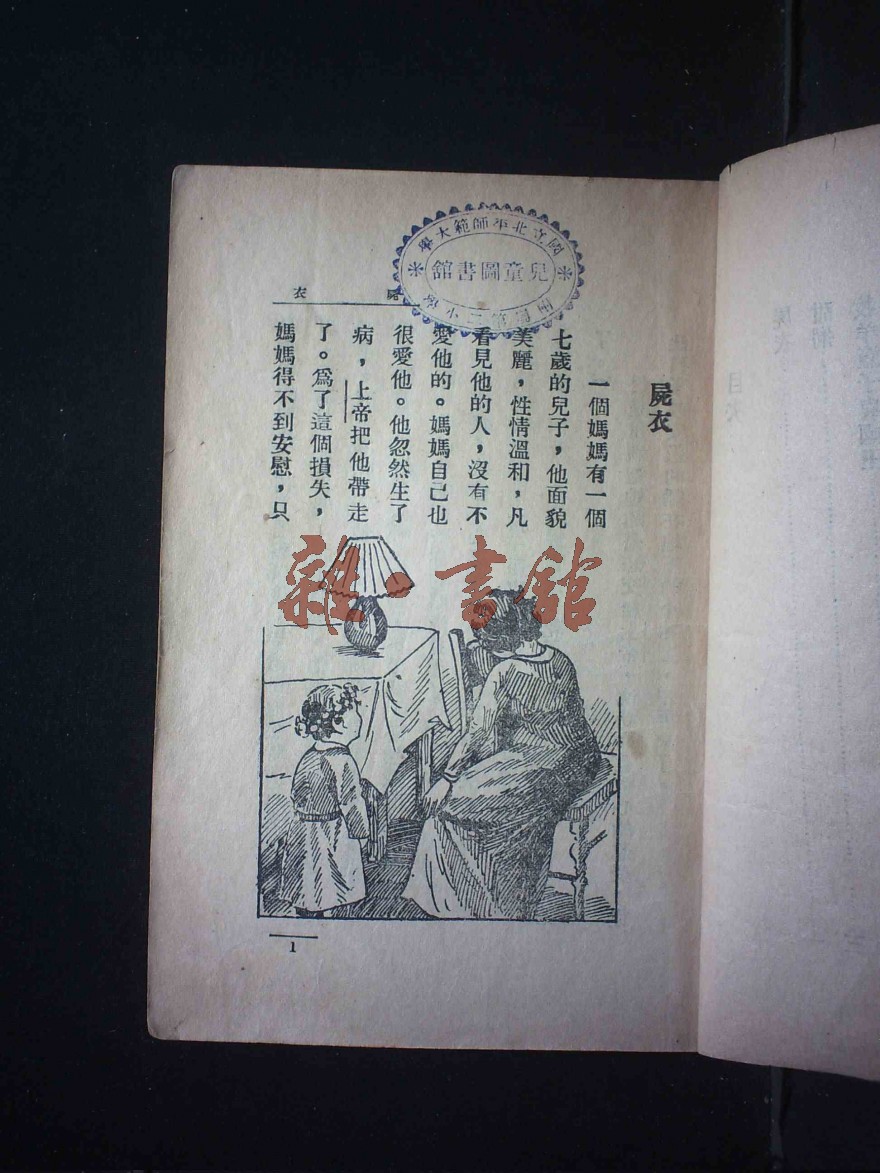 國立北平師範大學
兒童圖書館
屍衣
屍衣
一個媽媽有一個
七歲的兒子，他面貌
美麗，性情溫和，凡
看見他的人，沒有不
愛他的。媽媽自己也
很愛他。他忽然生了
病，上帝把他帶走
了。爲了這個損失，
媽媽得不到安慰，只
雜·書館
1